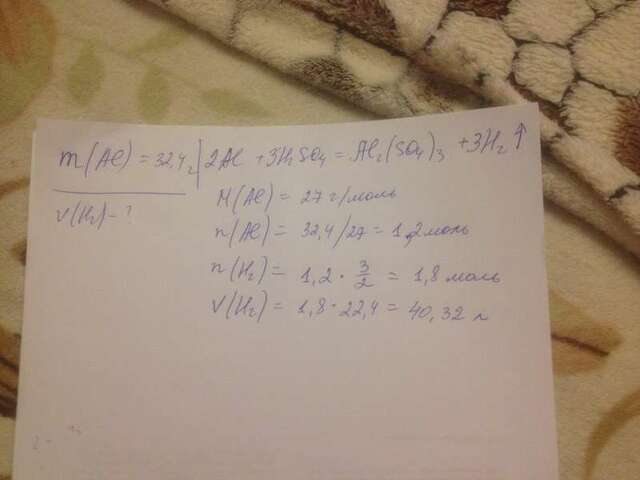 m(Al) = 32,4 г | 2Al + 3H₂SO₄ = Al₂(SO₄)₃ + 3H₂↑
V(H₂) - ?
M(Al) = 27 г/моль
n(Al) = 32,4/27 = 1,2 моль
n(H₂) = 1,2 · 3/2 = 1,8 моль
V(H₂) = 1,8 · 22,4 = 40,32 л